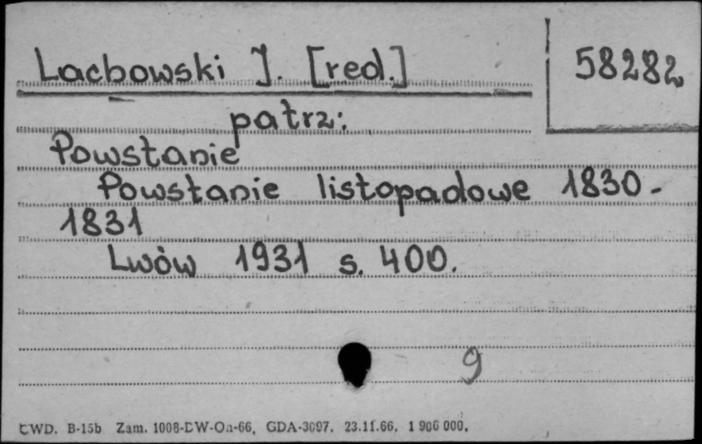 Lachowski J. [red.]
58282
patrz:
Powstanie
Powstanie listopadowe 1830-
1831
Lwów 1931 s. 400.
9
CWD. B-15b Zam. 1008-DW-On-66, GDA-3097. 23.11.66. 1 900 000.